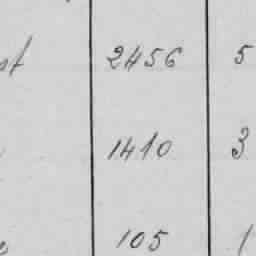 st 2456 5
1410 3
105 1